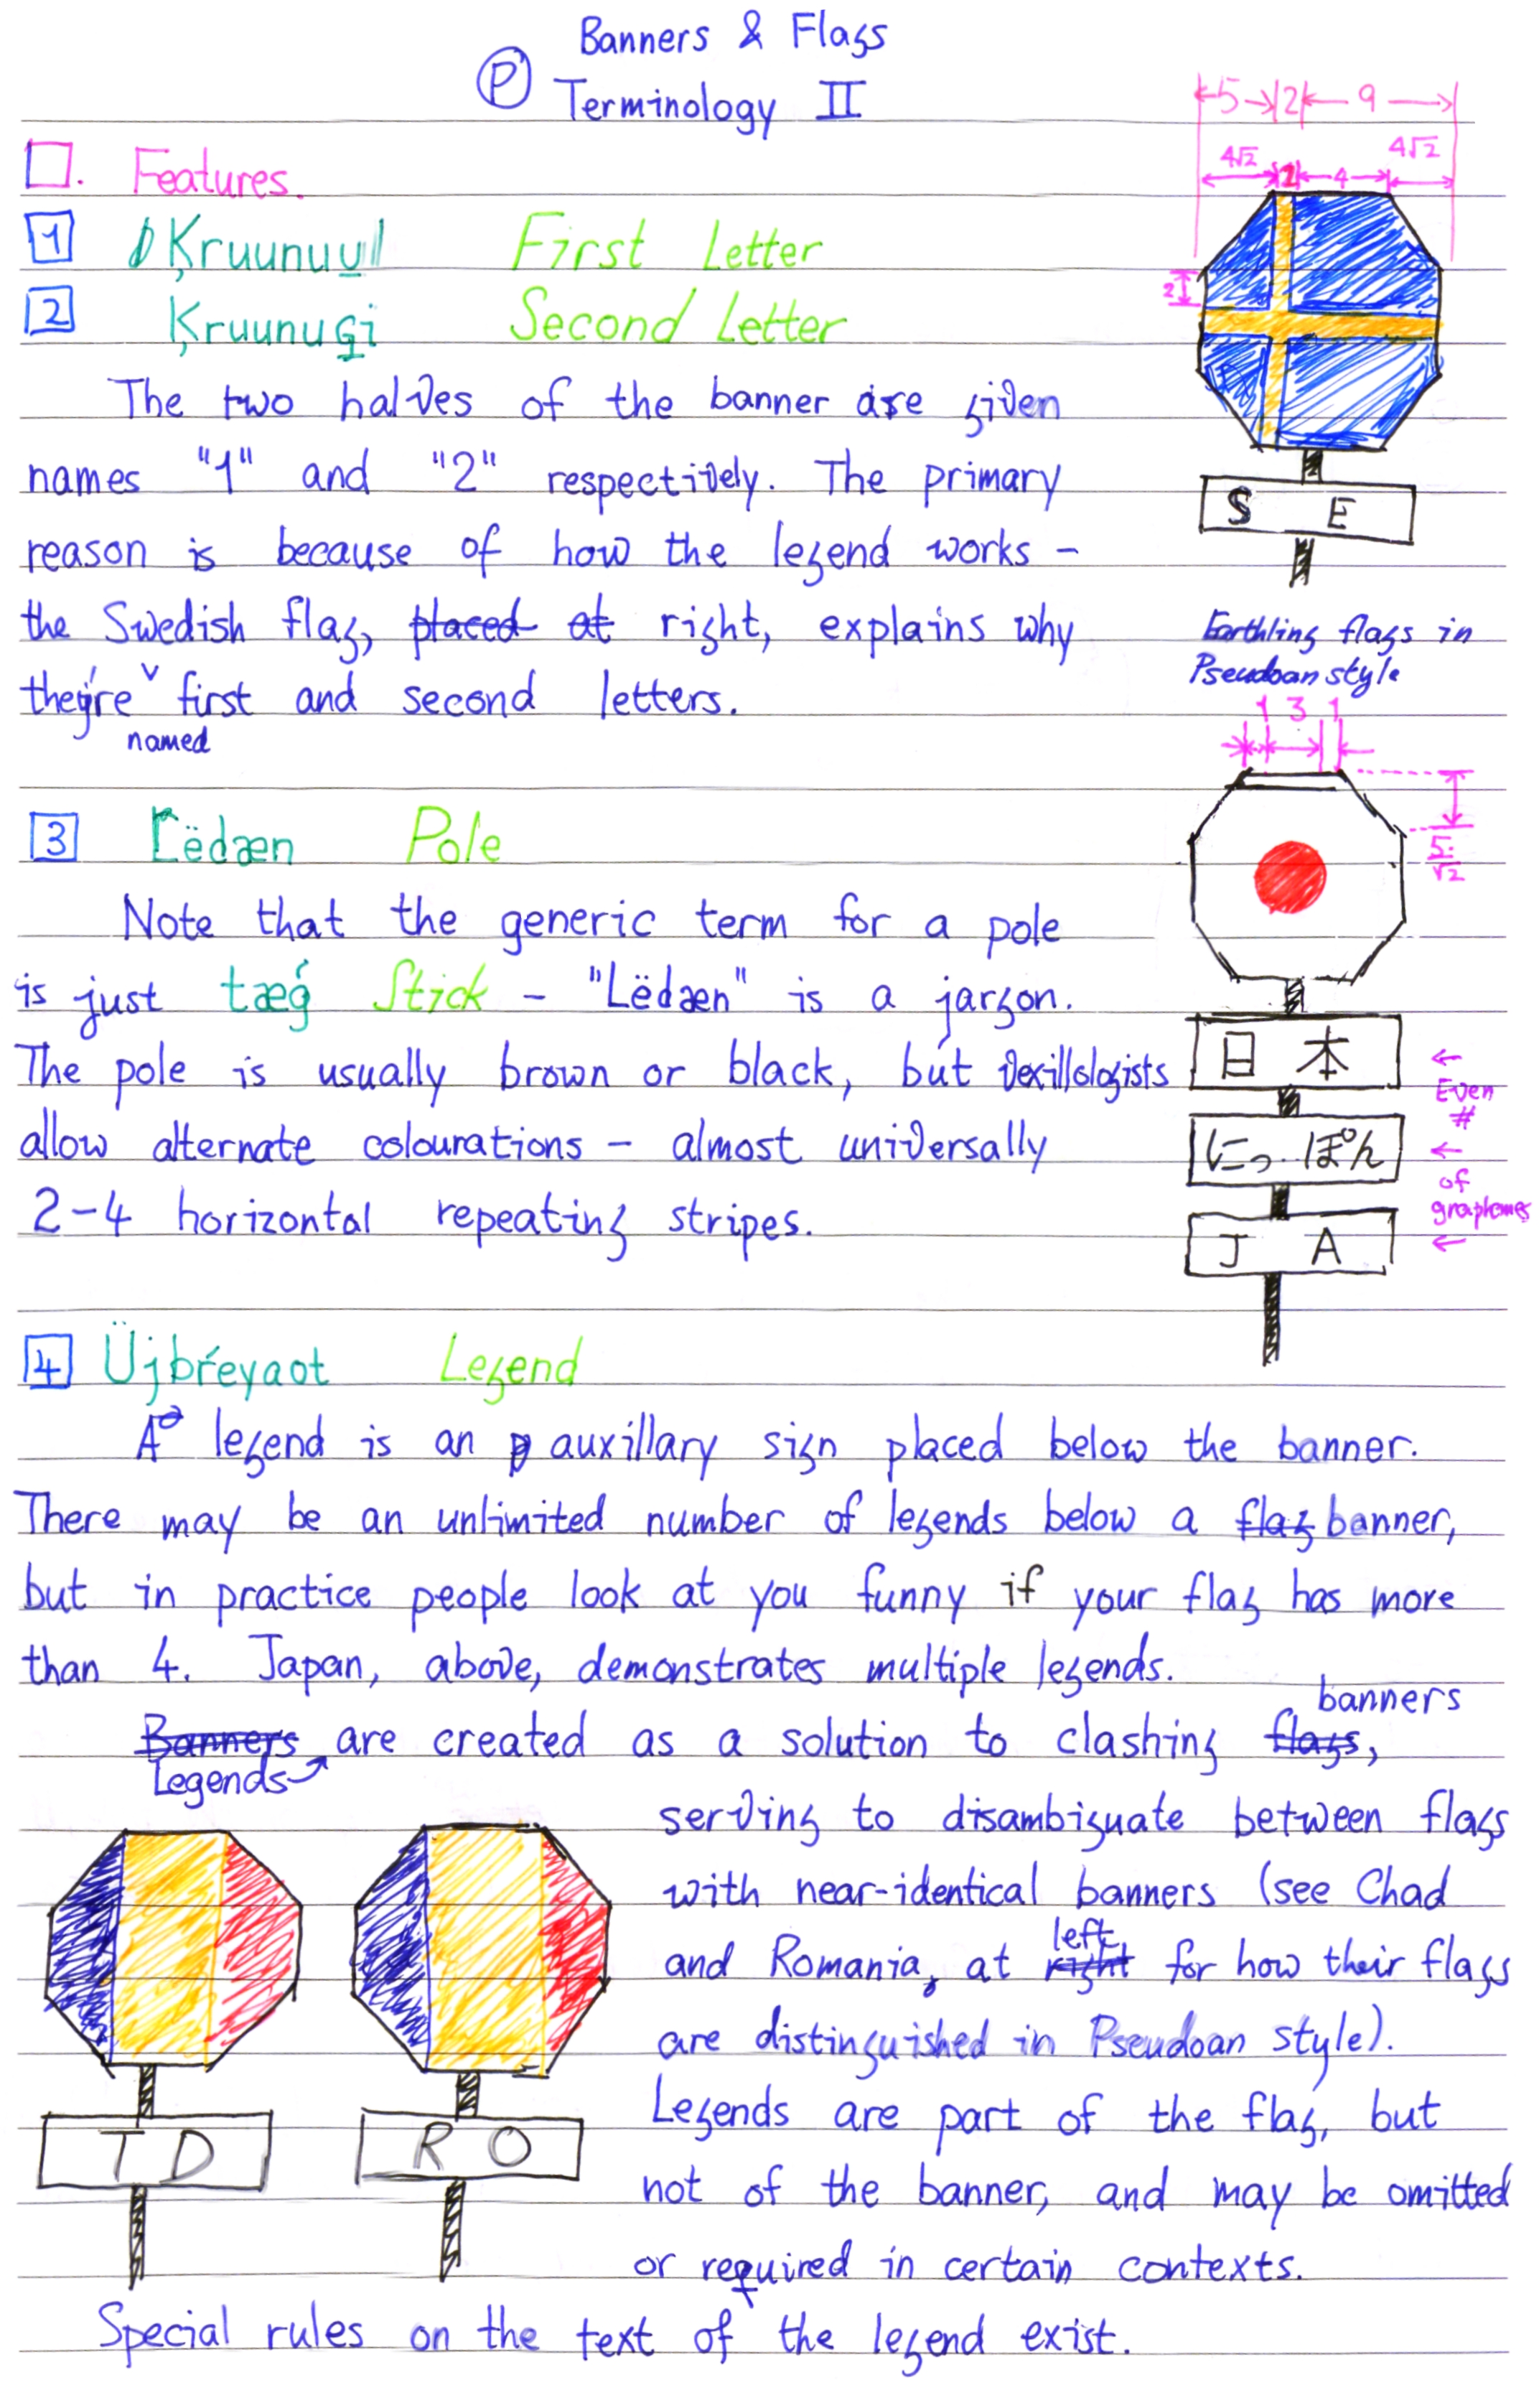 Banners & Flags
Ⓟ Terminology II
□. Features.
1 Ķruunuu̲l First Letter
2 Ķruunug̲i Second Letter
The two halves of the banner are given
names "1" and "2" respectively. The primary
reason is because of how the legend works –
the Swedish flag, placed at right, explains why
they're named first and second letters.
3 Lëdæn Pole
Note that the generic term for a pole
is just tæǵ Stick – "Lëdæn" is a jargon.
The pole is usually brown or black, but vexillologists
allow alternate colourations – almost universally
2-4 horizontal repeating stripes.
4 Üjbŕeyaot Legend
A legend is an auxillary sign placed below the banner.
There may be an unlimited number of legends below a flag banner,
but in practice people look at you funny if your flag has more
than 4. Japan, above, demonstrates multiple legends.
Banners Legends are created as a solution to clashing flags banners,
serving to disambiguate between flags
with near-identical banners (see Chad
and Romania, at right left for how their flags
are distinguished in Pseudoan style).
Legends are part of the flag, but
not of the banner, and may be omitted
or required in certain contexts.
Special rules on the text of the legend exist.
5 2 9
4√2 2 4 4√2
2
S E
Earthling flags in
Pseudoan style
1 3 1
5
√2
日 本
にっ ぽん
J A
← Even
#
← of
graphemes
←
T D
R O